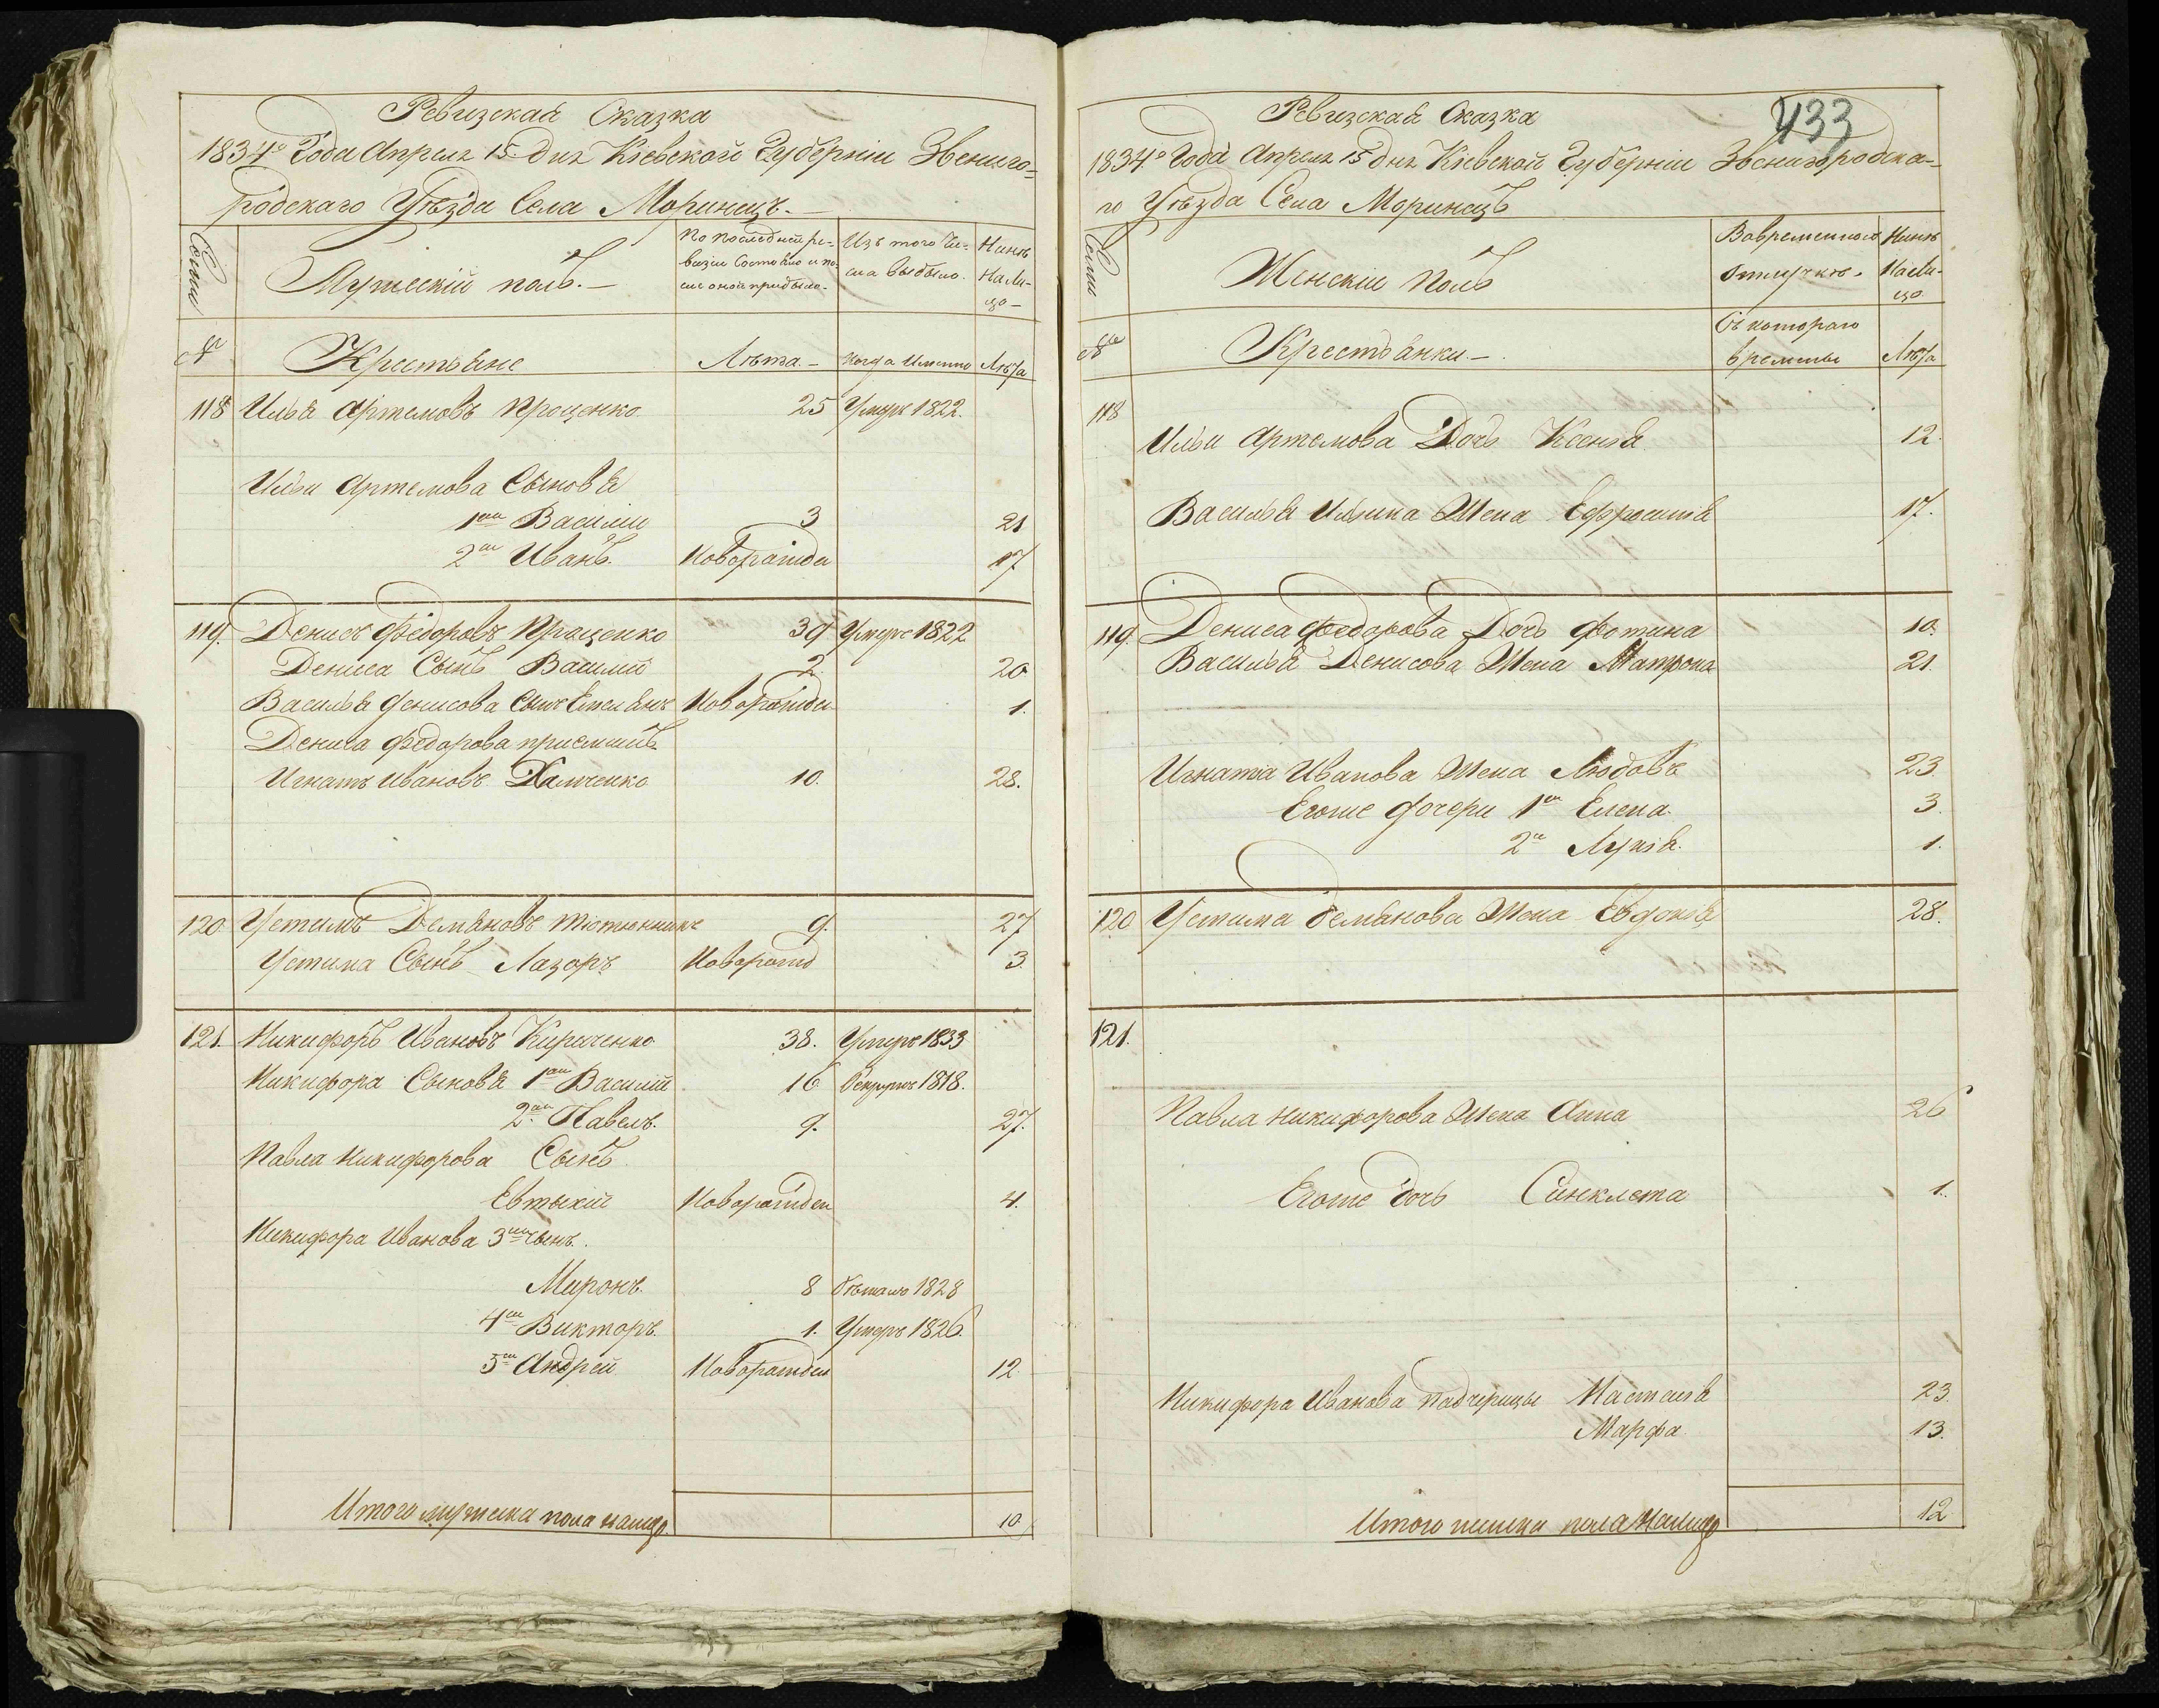 Ревизская Сказка
1834го Года Апреля 15 дня Кіевской Губерніи Звениго=
родскаго Уѣзда Села Моринецъ.
Семьи
Мужескій полъ.
По последней ре-
визіи Состояло и по-
сле оной прибыло.
Изъ того Чи-
сла выбыло.
Нынѣ
На Ли-
цо
№
Крестьяне
Лѣта.
когда Именно
Лѣта
118 Илья Артемовъ Проценко 25 Умеръ 1822.
Ильи Артемова Сыновья
1ый Василий 3 21
2ый Иванъ. Новорожден 17
119. Денисъ Федоровъ Проценко 39 Умеръ 1822
Дениса Сынъ Василий 2. 20
Василья Денисова Сынъ Емельянъ Новорожден 1.
Дениса Федорова приемышъ
Игнатъ Ивановъ Халченко 10. 28.
120 Устимъ Демьяновъ Тютюнникъ 9. 27
Устима Сынъ Лазоръ Новорожд 3.
121. Никифоръ Ивановъ Кириченко 38. Умеръ 1833
Никифора Сыновья 1ый Василий 16 Рекрутъ 1818.
2ый Павелъ. 9. 27.
Павла Никифорова Сынъ
Евтыхий Новорожден 4.
Никифора Иванова 3ий Сынъ.
Миронъ. 8 бежалъ 1828
4ый Викторъ. 1. Умеръ 1826.
5ый Андрей Новорожден 12
Итого мужеска пола налицо 10
433
Ревизская Сказка
1834го Года Апреля 15 дня Кіевской Губерніи Звенигородска-
го Уѣзда Села Моринецъ
Семьи
Женскіи Полъ
Вовременной
Отлучкѣ.
Нынѣ
Нали-
цо.
№
Крестьянки.
Съ котораго
времены
Лѣта
118
Ильи Артемова Дочь Ксенія 12.
Василья Ильина Жена Ефросинія 17.
119. Дениса Федорова Дочь Фотина 10.
Василья Денисова Жена Матрона 21.
Игната Иванова Жена Любовъ 23
Егоже дочери 1я Елена. 3.
2я Лукія. 1.
120 Устима Демьянова Жена Евдокія 28.
121.
Павла Никифорова Жена Анна 26
Егоже дочь Синклета 1.
Никифора Иванова падчерицы Настасія 23.
Марфа 13.
Итого женска пола Налицо 12